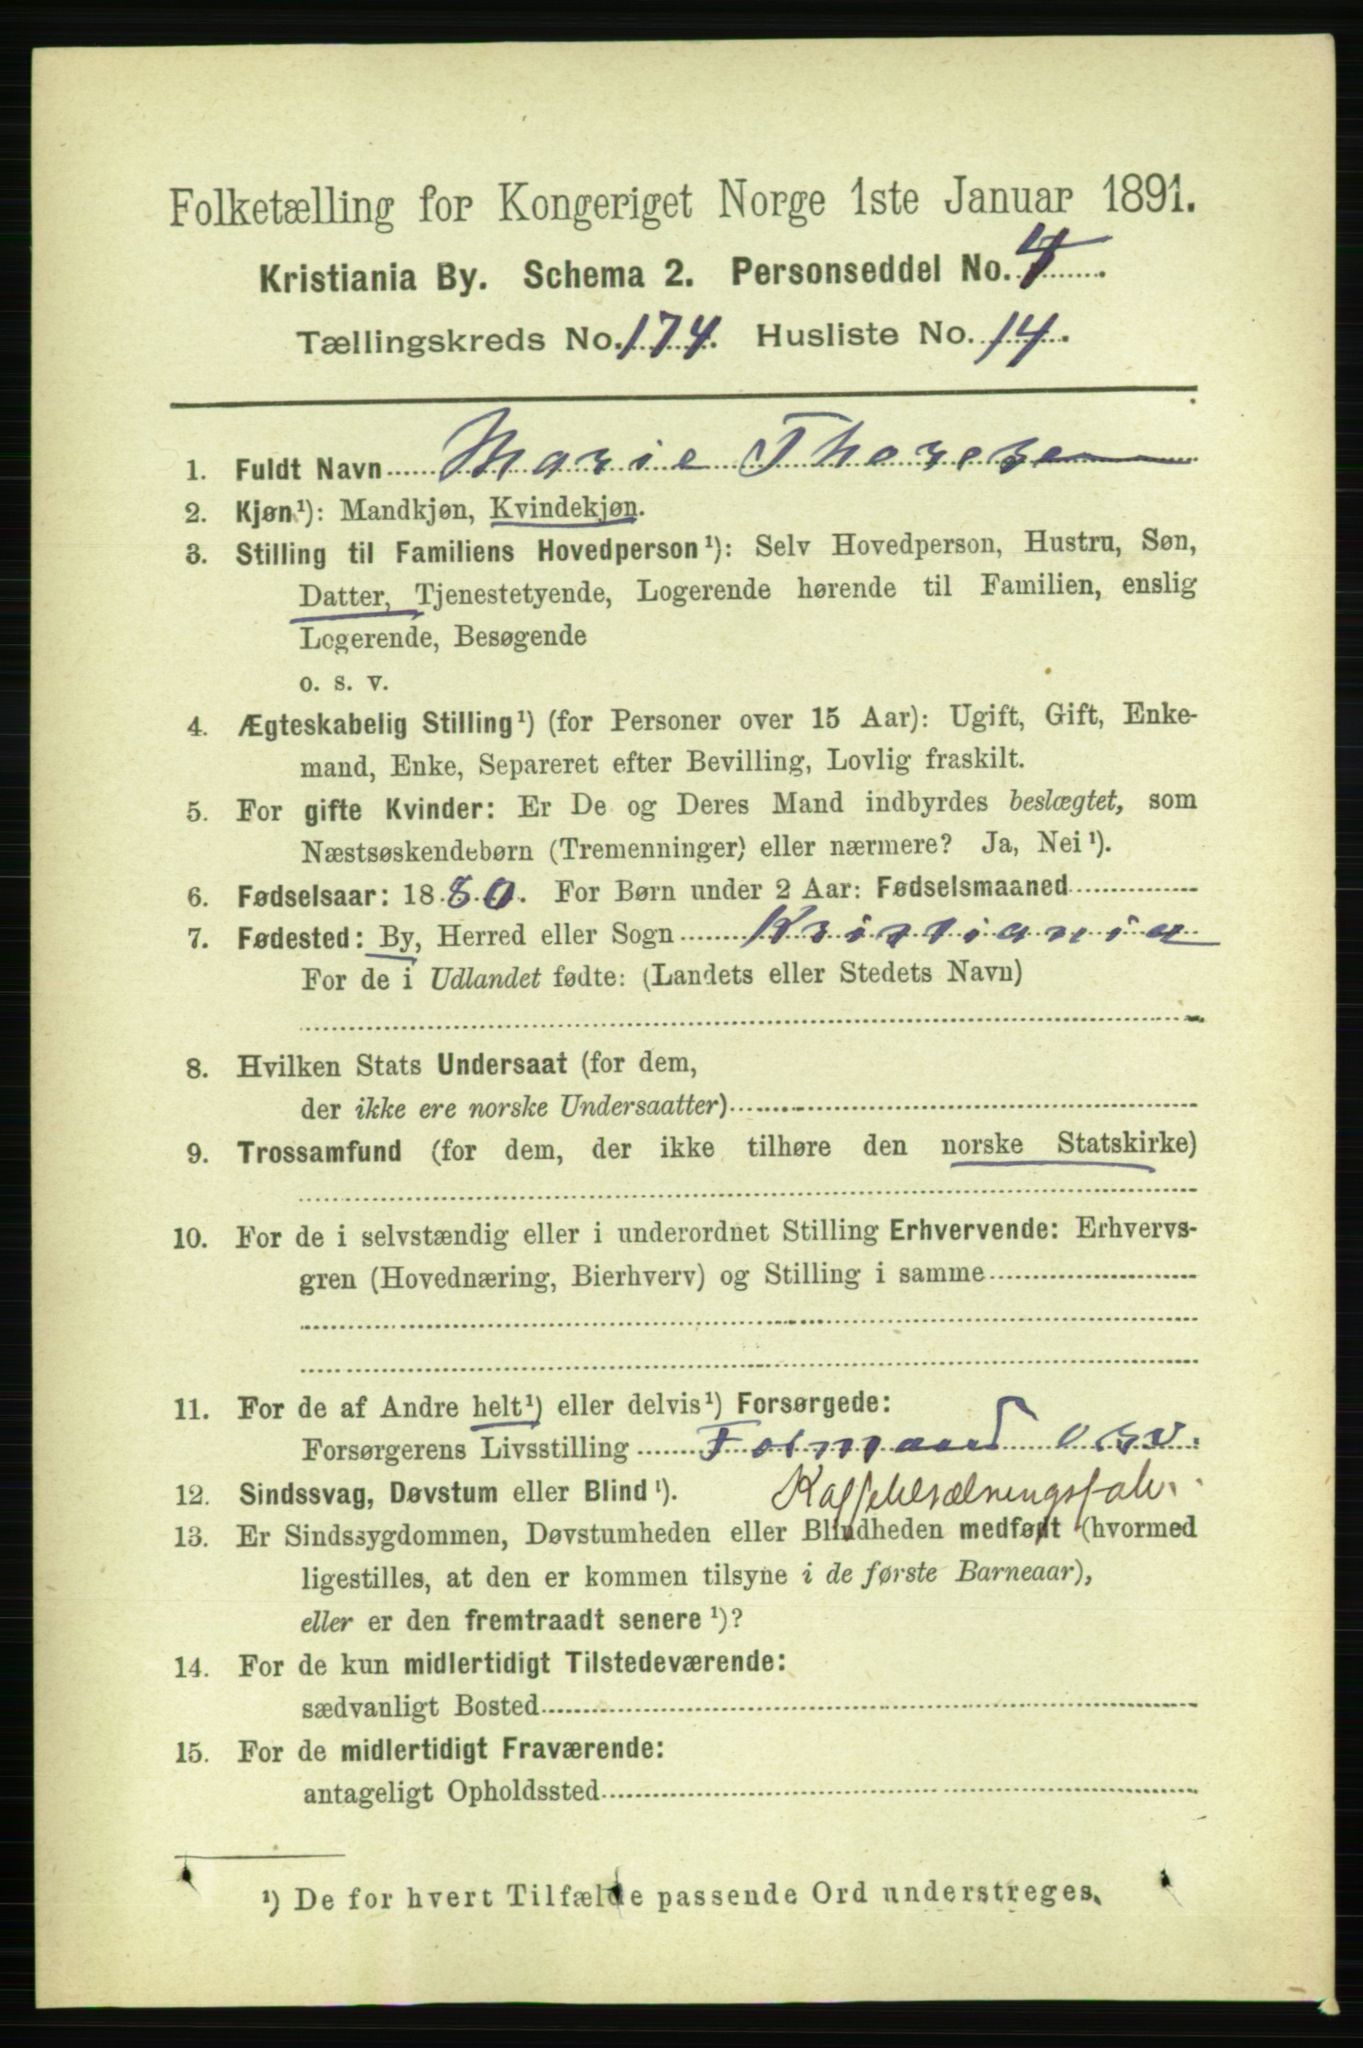 Folketælling for Kongeriget Norge 1ste Januar 1891.
Kristiania By. Schema 2. Personseddel No. 4.
Tællingskreds No. 174. Husliste No. 14.
1. Fuldt Navn Marie Thorese
2. Kjøn¹): Mandkjøn, Kvindekjøn.
3. Stilling til Familiens Hovedperson¹): Selv Hovedperson, Hustru, Søn,
Datter, Tjenestetyende, Logerende hørende til Familien, enslig
Logerende, Besøgende
o. s. v.
4. Ægteskabelig Stilling¹) (for Personer over 15 Aar): Ugift, Gift, Enke-
mand, Enke, Separeret efter Bevilling, Lovlig fraskilt.
5. For gifte Kvinder: Er De og Deres Mand indbyrdes beslægtet, som
Næstsøskendebørn (Tremenninger) eller nærmere? Ja, Nei¹).
6. Fødselsaar: 1880. For Børn under 2 Aar: Fødselsmaaned
7. Fødested: By, Herred eller Sogn Kristiania
For de i Udlandet fødte: (Landets eller Stedets Navn)
8. Hvilken Stats Undersaat (for dem,
der ikke ere norske Undersaatter)
9. Trossamfund (for dem, der ikke tilhøre den norske Statskirke)
10. For de i selvstændig eller i underordnet Stilling Erhvervende: Erhvervs-
gren (Hovednæring, Bierhverv) og Stilling i samme
11. For de af Andre helt¹) eller delvis¹) Forsørgede:
Forsørgerens Livsstilling Formand osv.
12. Sindssvag, Døvstum eller Blind¹).
13. Er Sindssygdommen, Døvstumheden eller Blindheden medfødt (hvormed
ligestilles, at den er kommen tilsyne i de første Barneaar),
eller er den fremtraadt senere¹)?
14. For de kun midlertidigt Tilstedeværende:
sædvanligt Bosted
15. For de midlertidigt Fraværende:
antageligt Opholdssted
¹) De for hvert Tilfælde passende Ord understreges.